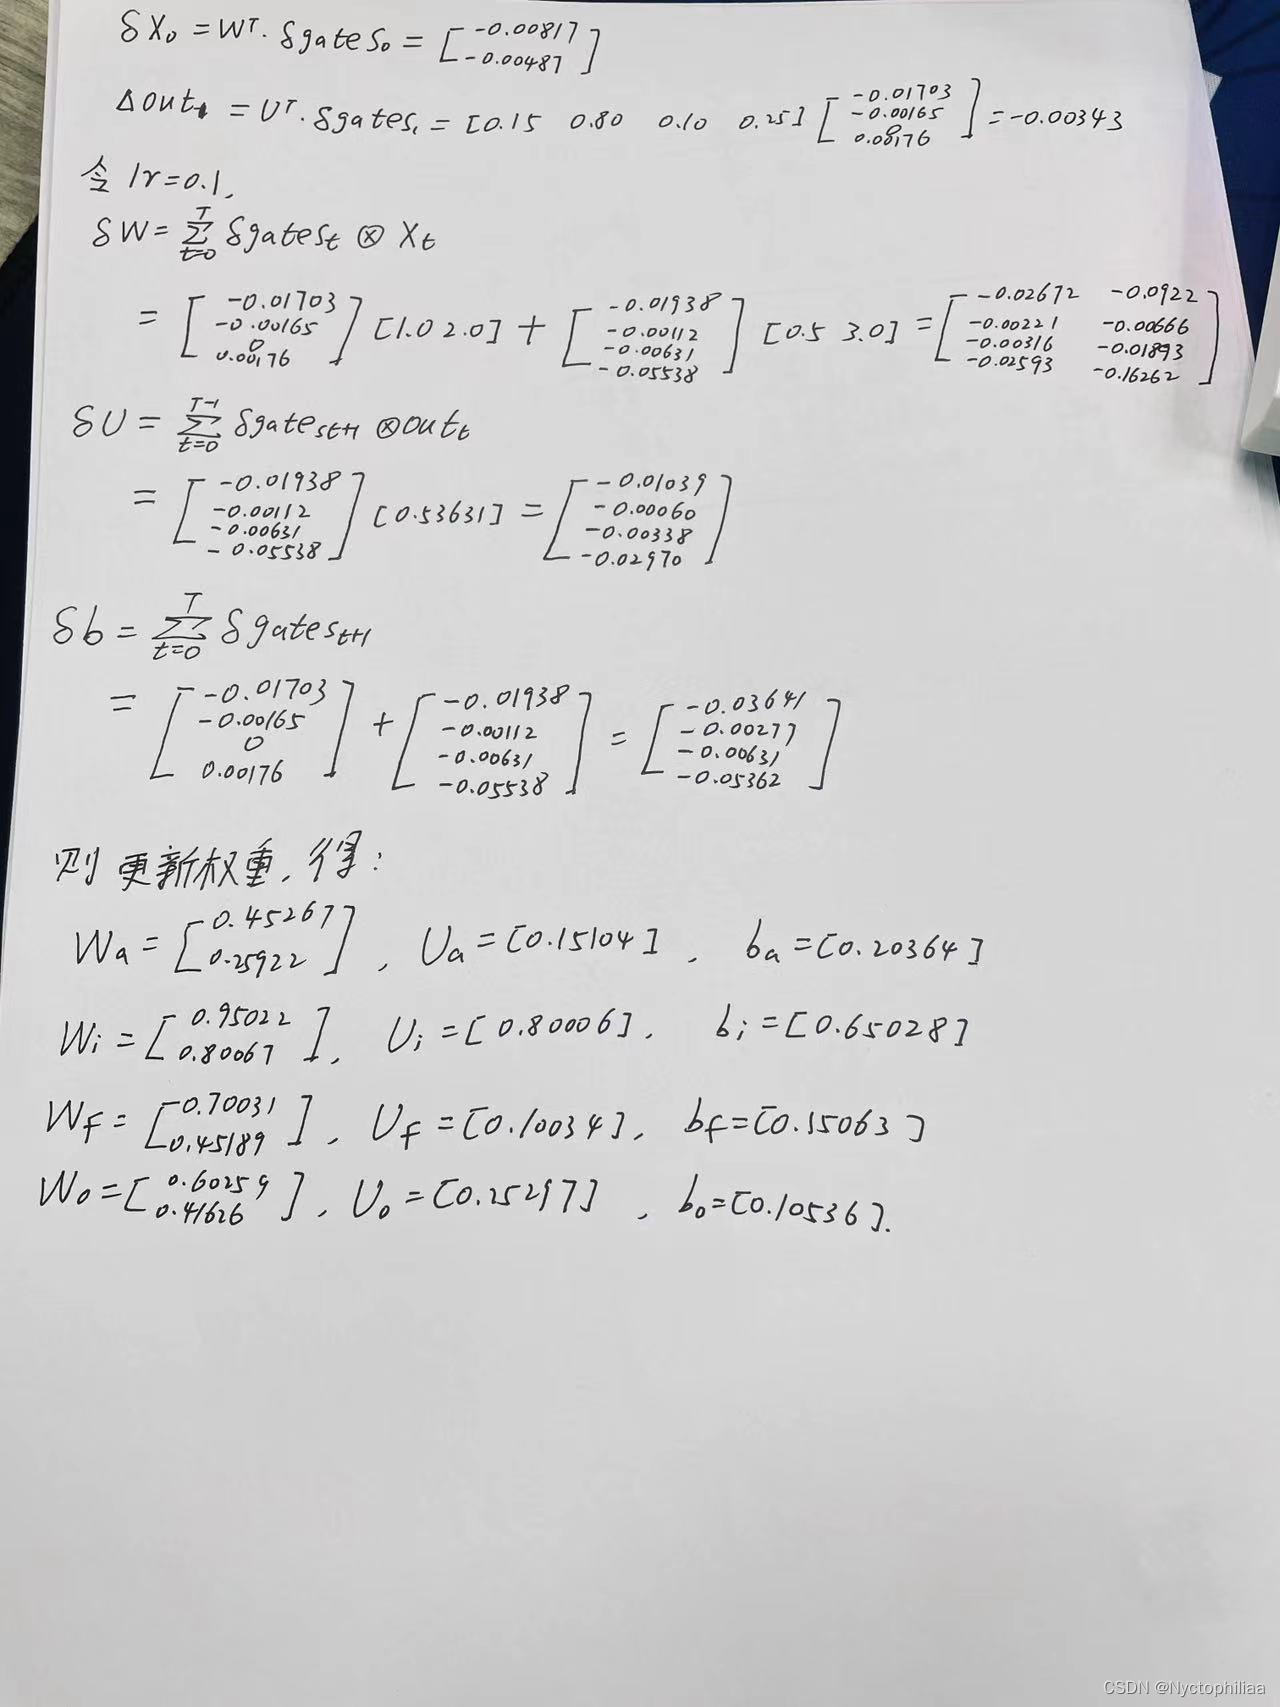 δX₀ = Wᵀ · δgates₀ = [-0.00817 -0.00487]
Δout₁ = Uᵀ · δgates₁ = [0.15 0.80 0.10 0.25] [-0.01703 -0.00165 0 0.00176] = -0.00343
令 lr=0.1,
δW = Σ(t=0..T) δgatesₜ ⊗ Xₜ
= [-0.01703 -0.00165 0 0.00176] [1.0 2.0] + [-0.01938 -0.00112 -0.00631 -0.05538] [0.5 3.0] = [-0.02672 -0.0922 -0.00221 -0.00666 -0.00316 -0.01893 -0.02593 -0.16262]
δU = Σ(t=0..T-1) δgatesₜ₊₁ ⊗ outₜ
= [-0.01938 -0.00112 -0.00631 -0.05538] [0.53631] = [-0.01039 -0.00060 -0.00338 -0.02970]
δb = Σ(t=0..T) δgatesₜ₊₁
= [-0.01703 -0.00165 0 0.00176] + [-0.01938 -0.00112 -0.00631 -0.05538] = [-0.03641 -0.00277 -0.00631 -0.05362]
则更新权重,得:
Wa = [0.45267 0.25922], Ua = [0.15104], ba = [0.20364]
Wi = [0.95022 0.80067], Ui = [0.80006], bi = [0.65028]
Wf = [0.70031 0.45189], Uf = [0.10034], bf = [0.15063]
Wo = [0.60259 0.41626], Uo = [0.25297], bo = [0.10536].
CSDN @Nyctophiliaa